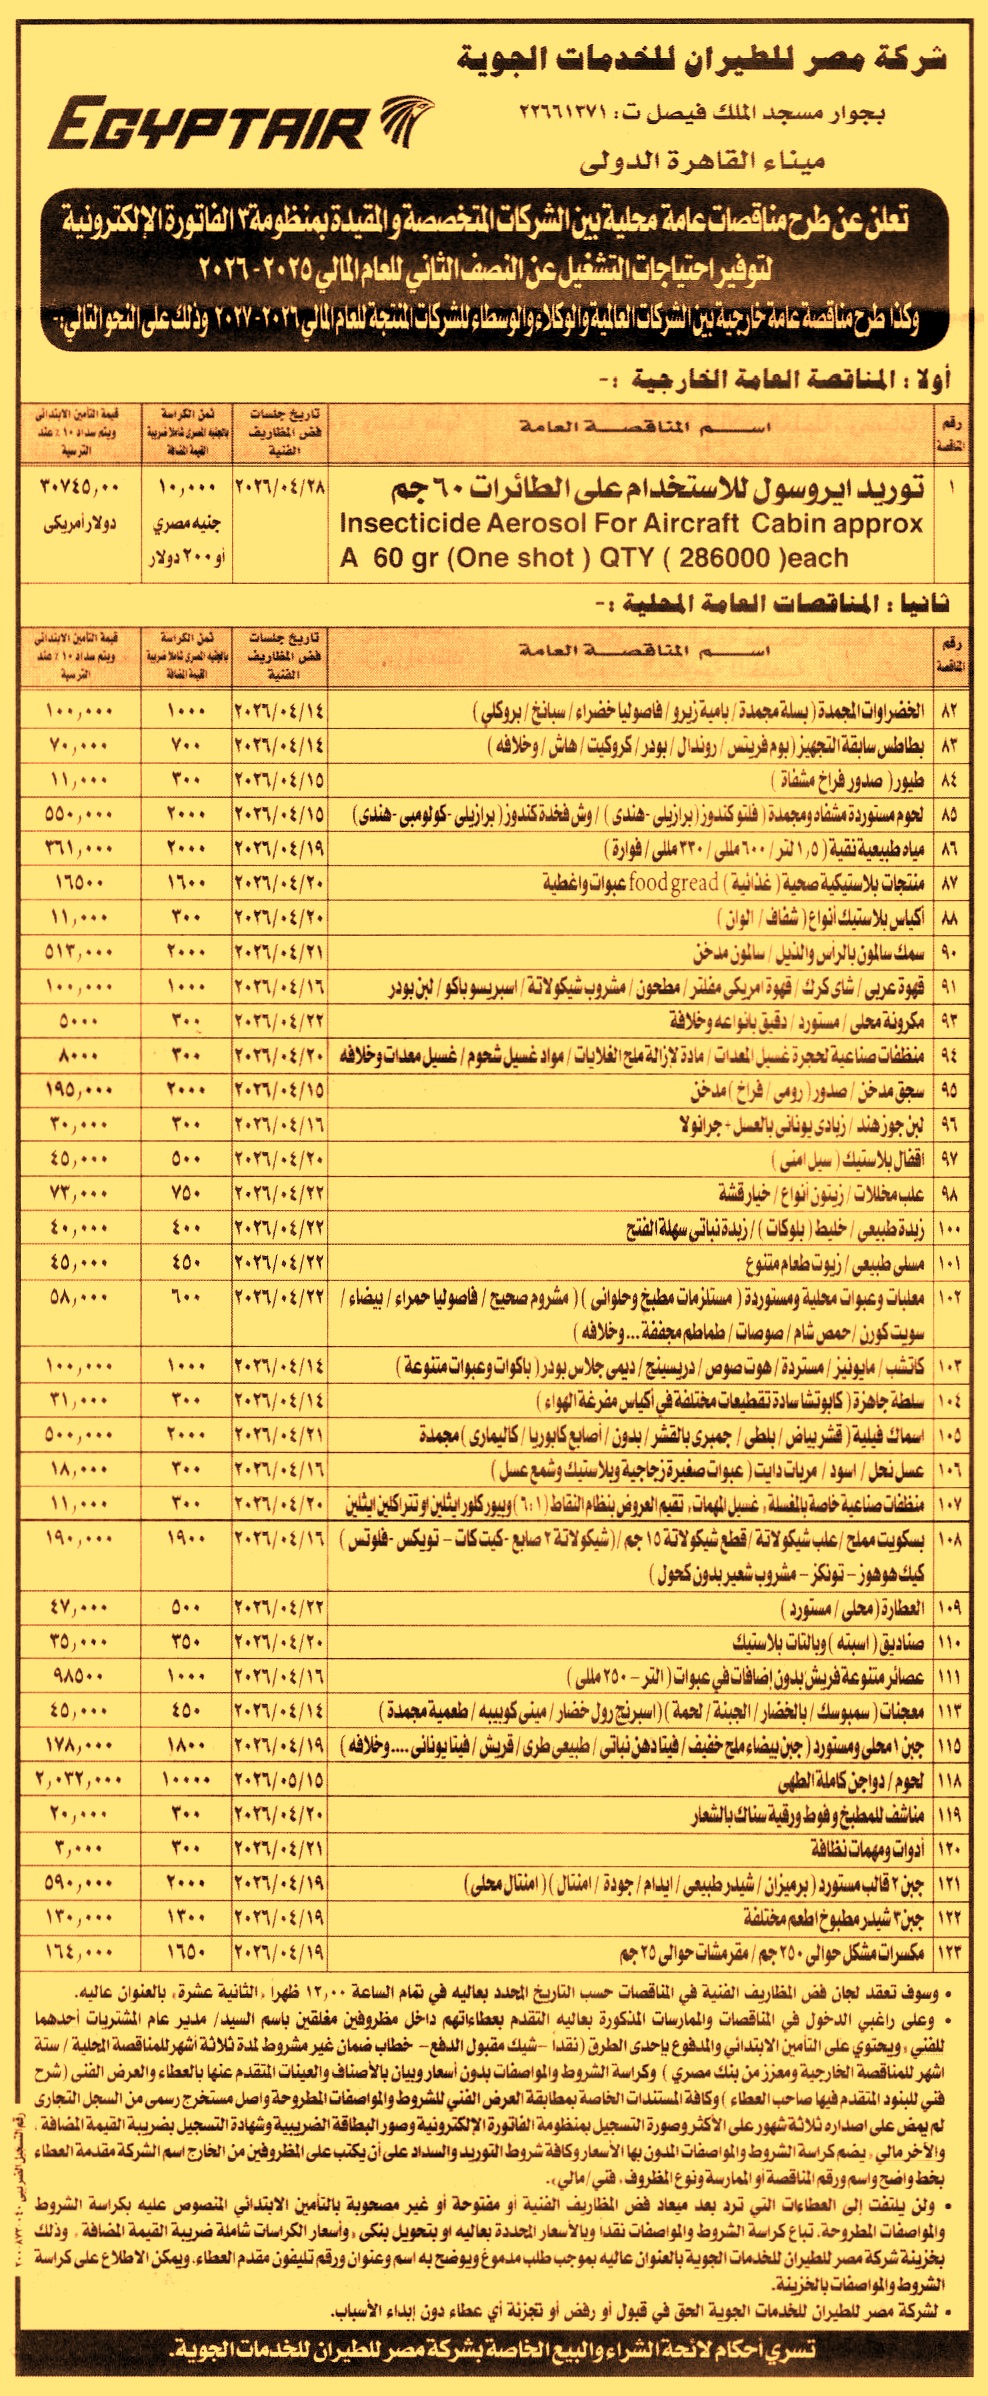 شركة مصر للطيران للخدمات الجوية
بجوار مسجد الملك فيصل ت: ٢٢٦٦١٣٧١
ميناء القاهرة الدولى
EGYPTAIR
تعلن عن طرح مناقصات عامة محلية بين الشركات المتخصصة والمقيدة بمنظومة ٣ الفاتورة الإلكترونية
لتوفير احتياجات التشغيل عن النصف الثاني للعام المالي ٢٠٢٥-٢٠٢٦
وكذا طرح مناقصة عامة خارجية بين الشركات العالمية والوكلاء والوسطاء للشركات المنتجة للعام المالي ٢٠٢٦-٢٠٢٧ وذلك على النحو التالي:-
أولا : المناقصة العامة الخارجية :-
رقم المناقصة | اسم المناقصة العامة | تاريخ جلسات فض المظاريف الفنية | ثمن الكراسة بالجنيه المصرى شاملا ضريبة القيمة المضافة | قيمة التأمين الابتدائى ويتم سداد ١٠٪ عند الترسية
١ | توريد ايروسول للاستخدام على الطائرات ٦٠ جم | ٢٠٢٦/٠٤/٢٨ | ١٠,٠٠٠ | ٣٠٧٤٥,٠٠
Insecticide Aerosol For Aircraft Cabin approx | جنيه مصري | دولار أمريكى
A 60 gr (One shot ) QTY ( 286000 )each | أو ٢٠٠ دولار
ثانيا : المناقصات العامة المحلية :-
رقم المناقصة | اسم المناقصة العامة | تاريخ جلسات فض المظاريف الفنية | ثمن الكراسة بالجنيه المصرى شاملا ضريبة القيمة المضافة | قيمة التأمين الابتدائى ويتم سداد ١٠٪ عند الترسية
٨٢ | الخضراوات المجمدة ( بسلة مجمدة / بامية زيرو / فاصوليا خضراء / سبانخ / بروكلي ) | ٢٠٢٦/٠٤/١٤ | ١٠٠٠ | ١٠٠,٠٠٠
٨٣ | بطاطس سابقة التجهيز ( بوم فريتس / روندال / بودر / كروكيت / هاش / وخلافه ) | ٢٠٢٦/٠٤/١٤ | ٧٠٠ | ٧٠,٠٠٠
٨٤ | طيور ( صدور فراخ مشفاة ) | ٢٠٢٦/٠٤/١٥ | ٣٠٠ | ١١,٠٠٠
٨٥ | لحوم مستوردة مشفاه ومجمدة ( فلتو كندوز ( برازيلى - هندى ) / وش فخدة كندوز ( برازيلى - كولومبى - هندى ) | ٢٠٢٦/٠٤/١٥ | ٢٠٠٠ | ٥٥٠,٠٠٠
٨٦ | مياه طبيعية نقية ( ١,٥ لتر / ٦٠٠ مللى / ٣٣٠ مللى / فوارة ) | ٢٠٢٦/٠٤/١٩ | ٢٠٠٠ | ٣٦١,٠٠٠
٨٧ | منتجات بلاستيكية صحية ( غذائية ) food gread عبوات واغطية | ٢٠٢٦/٠٤/٢٠ | ١٦٠٠ | ١٦٥٠٠
٨٨ | أكياس بلاستيك أنواع ( شفاف / الوان ) | ٢٠٢٦/٠٤/٢٠ | ٣٠٠ | ١١,٠٠٠
٩٠ | سمك سالمون بالرأس والذيل / سالمون مدخن | ٢٠٢٦/٠٤/٢١ | ٢٠٠٠ | ٥١٣,٠٠٠
٩١ | قهوة عربى / شاى كرك / قهوة امريكى مفلتر / مطحون / مشروب شيكولاتة / اسبريسو باكو / لبن بودر | ٢٠٢٦/٠٤/١٦ | ١٠٠٠ | ١٠٠,٠٠٠
٩٣ | مكرونة محلى / مستورد / دقيق بانواعه وخلافة | ٢٠٢٦/٠٤/٢٢ | ٣٠٠ | ٥٠٠٠
٩٤ | منظفات صناعية لحجرة غسيل المعدات / مادة لإزالة ملح الغلايات / مواد غسيل شحوم / غسيل معدات وخلافه | ٢٠٢٦/٠٤/٢٠ | ٣٠٠ | ٨٠٠٠
٩٥ | سجق مدخن / صدور ( رومى / فراخ ) مدخن | ٢٠٢٦/٠٤/١٥ | ٢٠٠٠ | ١٩٥,٠٠٠
٩٦ | لبن جوز هند / زبادى يونانى بالعسل + جرانولا | ٢٠٢٦/٠٤/١٦ | ٣٠٠ | ٣٠,٠٠٠
٩٧ | اقفال بلاستيك ( سيل امنى ) | ٢٠٢٦/٠٤/٢٠ | ٥٠٠ | ٤٥,٠٠٠
٩٨ | علب مخللات / زيتون أنواع / خيار قشة | ٢٠٢٦/٠٤/٢٢ | ٧٥٠ | ٧٣,٠٠٠
١٠٠ | زبدة طبيعى / خليط ( بلوكات ) / زبدة نباتى سهلة الفتح | ٢٠٢٦/٠٤/٢٢ | ٤٠٠ | ٤٠,٠٠٠
١٠١ | مسلى طبيعى / زيوت طعام متنوع | ٢٠٢٦/٠٤/٢٢ | ٤٥٠ | ٤٥,٠٠٠
١٠٢ | معلبات وعبوات محلية ومستوردة ( مستلزمات مطبخ وحلوانى ) ( مشروم صحيح / فاصوليا حمراء / بيضاء / | ٢٠٢٦/٠٤/٢٢ | ٦٠٠ | ٥٨,٠٠٠
سويت كورن / حمص شام / صوصات / طماطم مجففة ... وخلافه )
١٠٣ | كاتشب / مايونيز / مستردة / هوت صوص / دريسينج / ديمى جلاس بودر ( باكوات وعبوات متنوعة ) | ٢٠٢٦/٠٤/١٤ | ١٠٠٠ | ١٠٠,٠٠٠
١٠٤ | سلطة جاهزة ( كابوتشا سادة تقطيعات مختلفة في أكياس مفرغة الهواء ) | ٢٠٢٦/٠٤/١٤ | ٣٠٠ | ٣١,٠٠٠
١٠٥ | اسماك فيلية ( قشر بياض / بلطى / جمبرى بالقشر / بدون / أصابع كابوريا / كاليمارى ) مجمدة | ٢٠٢٦/٠٤/٢١ | ٢٠٠٠ | ٥٠٠,٠٠٠
١٠٦ | عسل نحل / اسود / مربات دايت ( عبوات صغيرة زجاجية وبلاستيك وشمع عسل ) | ٢٠٢٦/٠٤/١٦ | ٣٠٠ | ١٨,٠٠٠
١٠٧ | منظفات صناعية خاصة بالمغسلة، غسيل المهمات، تقيم العروض بنظام النقاط (٦:١) وبيور كلور ايثلين او تتراكلين ايثلين | ٢٠٢٦/٠٤/٢٠ | ٣٠٠ | ١١,٠٠٠
١٠٨ | بسكويت مملح / علب شيكولاتة / قطع شيكولاتة ١٥ جم / ( شيكولاتة ٢ صابع - كيت كات - تويكس - فلوتس ) | ٢٠٢٦/٠٤/١٦ | ١٩٠٠ | ١٩٠,٠٠٠
كيك هوهوز - تونكز - مشروب شعير بدون كحول )
١٠٩ | العطارة ( محلى / مستورد ) | ٢٠٢٦/٠٤/٢٢ | ٥٠٠ | ٤٧,٠٠٠
١١٠ | صناديق ( اسبته ) وبالتات بلاستيك | ٢٠٢٦/٠٤/٢٠ | ٣٥٠ | ٣٥,٠٠٠
١١١ | عصائر متنوعة فريش بدون إضافات في عبوات ( التر - ٢٥٠ مللى ) | ٢٠٢٦/٠٤/١٦ | ١٠٠٠ | ٩٨٥٠٠
١١٣ | معجنات ( سمبوسك / بالخضار / الجبنة / لحمة ) ( اسبرنج رول خضار / مينى كوبيبه / طعمية مجمدة ) | ٢٠٢٦/٠٤/١٤ | ٤٥٠ | ٤٥,٠٠٠
١١٥ | جبن ١ محلى ومستورد ( جبن بيضاء ملح خفيف / فيتا دهن نباتى / طبيعى طرى / قريش / فيتا يونانى .... وخلافه ) | ٢٠٢٦/٠٤/١٩ | ١٨٠٠ | ١٧٨,٠٠٠
١١٨ | لحوم / دواجن كاملة الطهى | ٢٠٢٦/٠٥/١٥ | ١٠٠٠٠ | ٢,٠٣٢,٠٠٠
١١٩ | مناشف للمطبخ و فوط ورقية سناك بالشعار | ٢٠٢٦/٠٤/٢٠ | ٣٠٠ | ٢٠,٠٠٠
١٢٠ | أدوات ومهمات نظافة | ٢٠٢٦/٠٤/٢١ | ٣٠٠ | ٣,٠٠٠
١٢١ | جبن ٢ قالب مستورد ( برميزان / شيدر طبيعى / ايدام / جودة / امنتال ) ( امنتال محلى ) | ٢٠٢٦/٠٤/١٩ | ٢٠٠٠ | ٥٩٠,٠٠٠
١٢٢ | جبن ٣ شيدر مطبوخ اطعم مختلفة | ٢٠٢٦/٠٤/١٩ | ١٣٠٠ | ١٣٠,٠٠٠
١٢٣ | مكسرات مشكل حوالى ٢٥٠ جم / مقرمشات حوالى ٢٥ جم | ٢٠٢٦/٠٤/١٩ | ١٦٥٠ | ١٦٤,٠٠٠
• وسوف تعقد لجان فض المظاريف الفنية في المناقصات حسب التاريخ المحدد بعاليه في تمام الساعة ١٢,٠٠ ظهرا، الثانية عشرة، بالعنوان عاليه.
• وعلى راغبي الدخول في المناقصات والممارسات المذكورة بعاليه التقدم بعطاءاتهم داخل مظروفين مغلقين باسم السيد/ مدير عام المشتريات أحدهما
للفني، ويحتوي على التأمين الابتدائي والمدفوع بإحدى الطرق (نقدا - شيك مقبول الدفع - خطاب ضمان غير مشروط لمدة ثلاثة أشهر للمناقصة المحلية / ستة
اشهر للمناقصة الخارجية ومعزز من بنك مصري ) وكراسة الشروط والمواصفات بدون أسعار وبيان بالأصناف والعينات المتقدم عنها بالعطاء والعرض الفنى (شرح
فني للبنود المتقدم فيها صاحب العطاء ) وكافة المستندات الخاصة بمطابقة العرض الفني للشروط والمواصفات المطروحة واصل مستخرج رسمى من السجل التجارى
لم يمض على اصداره ثلاثة شهور على الأكثر وصورة التسجيل بمنظومة الفاتورة الإلكترونية وصور البطاقة الضريبية وشهادة التسجيل بضريبة القيمة المضافة،
والآخر مالي، يضم كراسة الشروط والمواصفات المدون بها الأسعار وكافة شروط التوريد والسداد على أن يكتب على المظروفين من الخارج اسم الشركة مقدمة العطاء
بخط واضح واسم ورقم المناقصة أو الممارسة ونوع المظروف، فني / مالي،.
• ولن يلتفت إلى العطاءات التي ترد بعد ميعاد فض المظاريف الفنية أو مفتوحة أو غير مصحوبة بالتأمين الابتدائي المنصوص عليه بكراسة الشروط
والمواصفات المطروحة. تباع كراسة الشروط والمواصفات نقدا وبالأسعار المحددة بعاليه او بتحويل بنكي، وأسعار الكراسات شاملة ضريبة القيمة المضافة، وذلك
بخزينة شركة مصر للطيران للخدمات الجوية بالعنوان عاليه بموجب طلب مدموغ ويوضح به اسم وعنوان ورقم تليفون مقدم العطاء. ويمكن الاطلاع على كراسة
الشروط والمواصفات بالخزينة.
• لشركة مصر للطيران للخدمات الجوية الحق في قبول أو رفض أو تجزئة أي عطاء دون إبداء الأسباب.
تسري أحكام لائحة الشراء والبيع الخاصة بشركة مصر للطيران للخدمات الجوية.